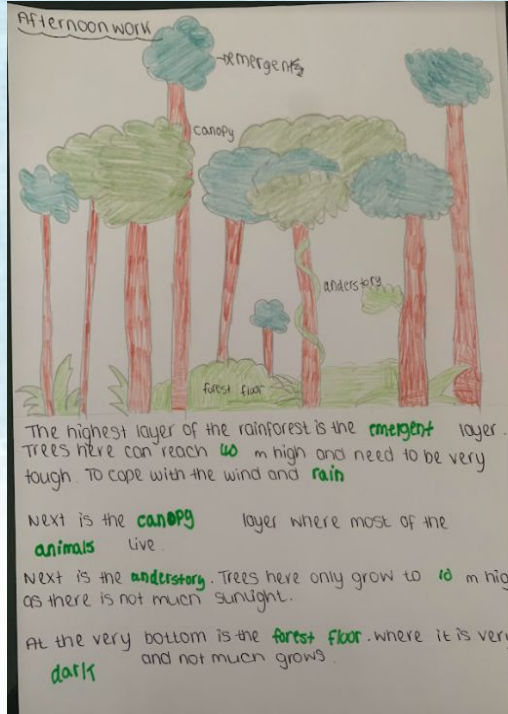 Afternoon work
emergent
canopy
anderstory
forest floor
The highest layer of the rainforest is the emergent layer.
Trees here can reach 60 m high and need to be very
tough. To cope with the wind and rain
Next is the canopy layer where most of the
animals live.
Next is the anderstory. Trees here only grow to 10 m hig
as there is not much sunlight.
At the very bottom is the forest floor. where it is very
dark and not much grows.